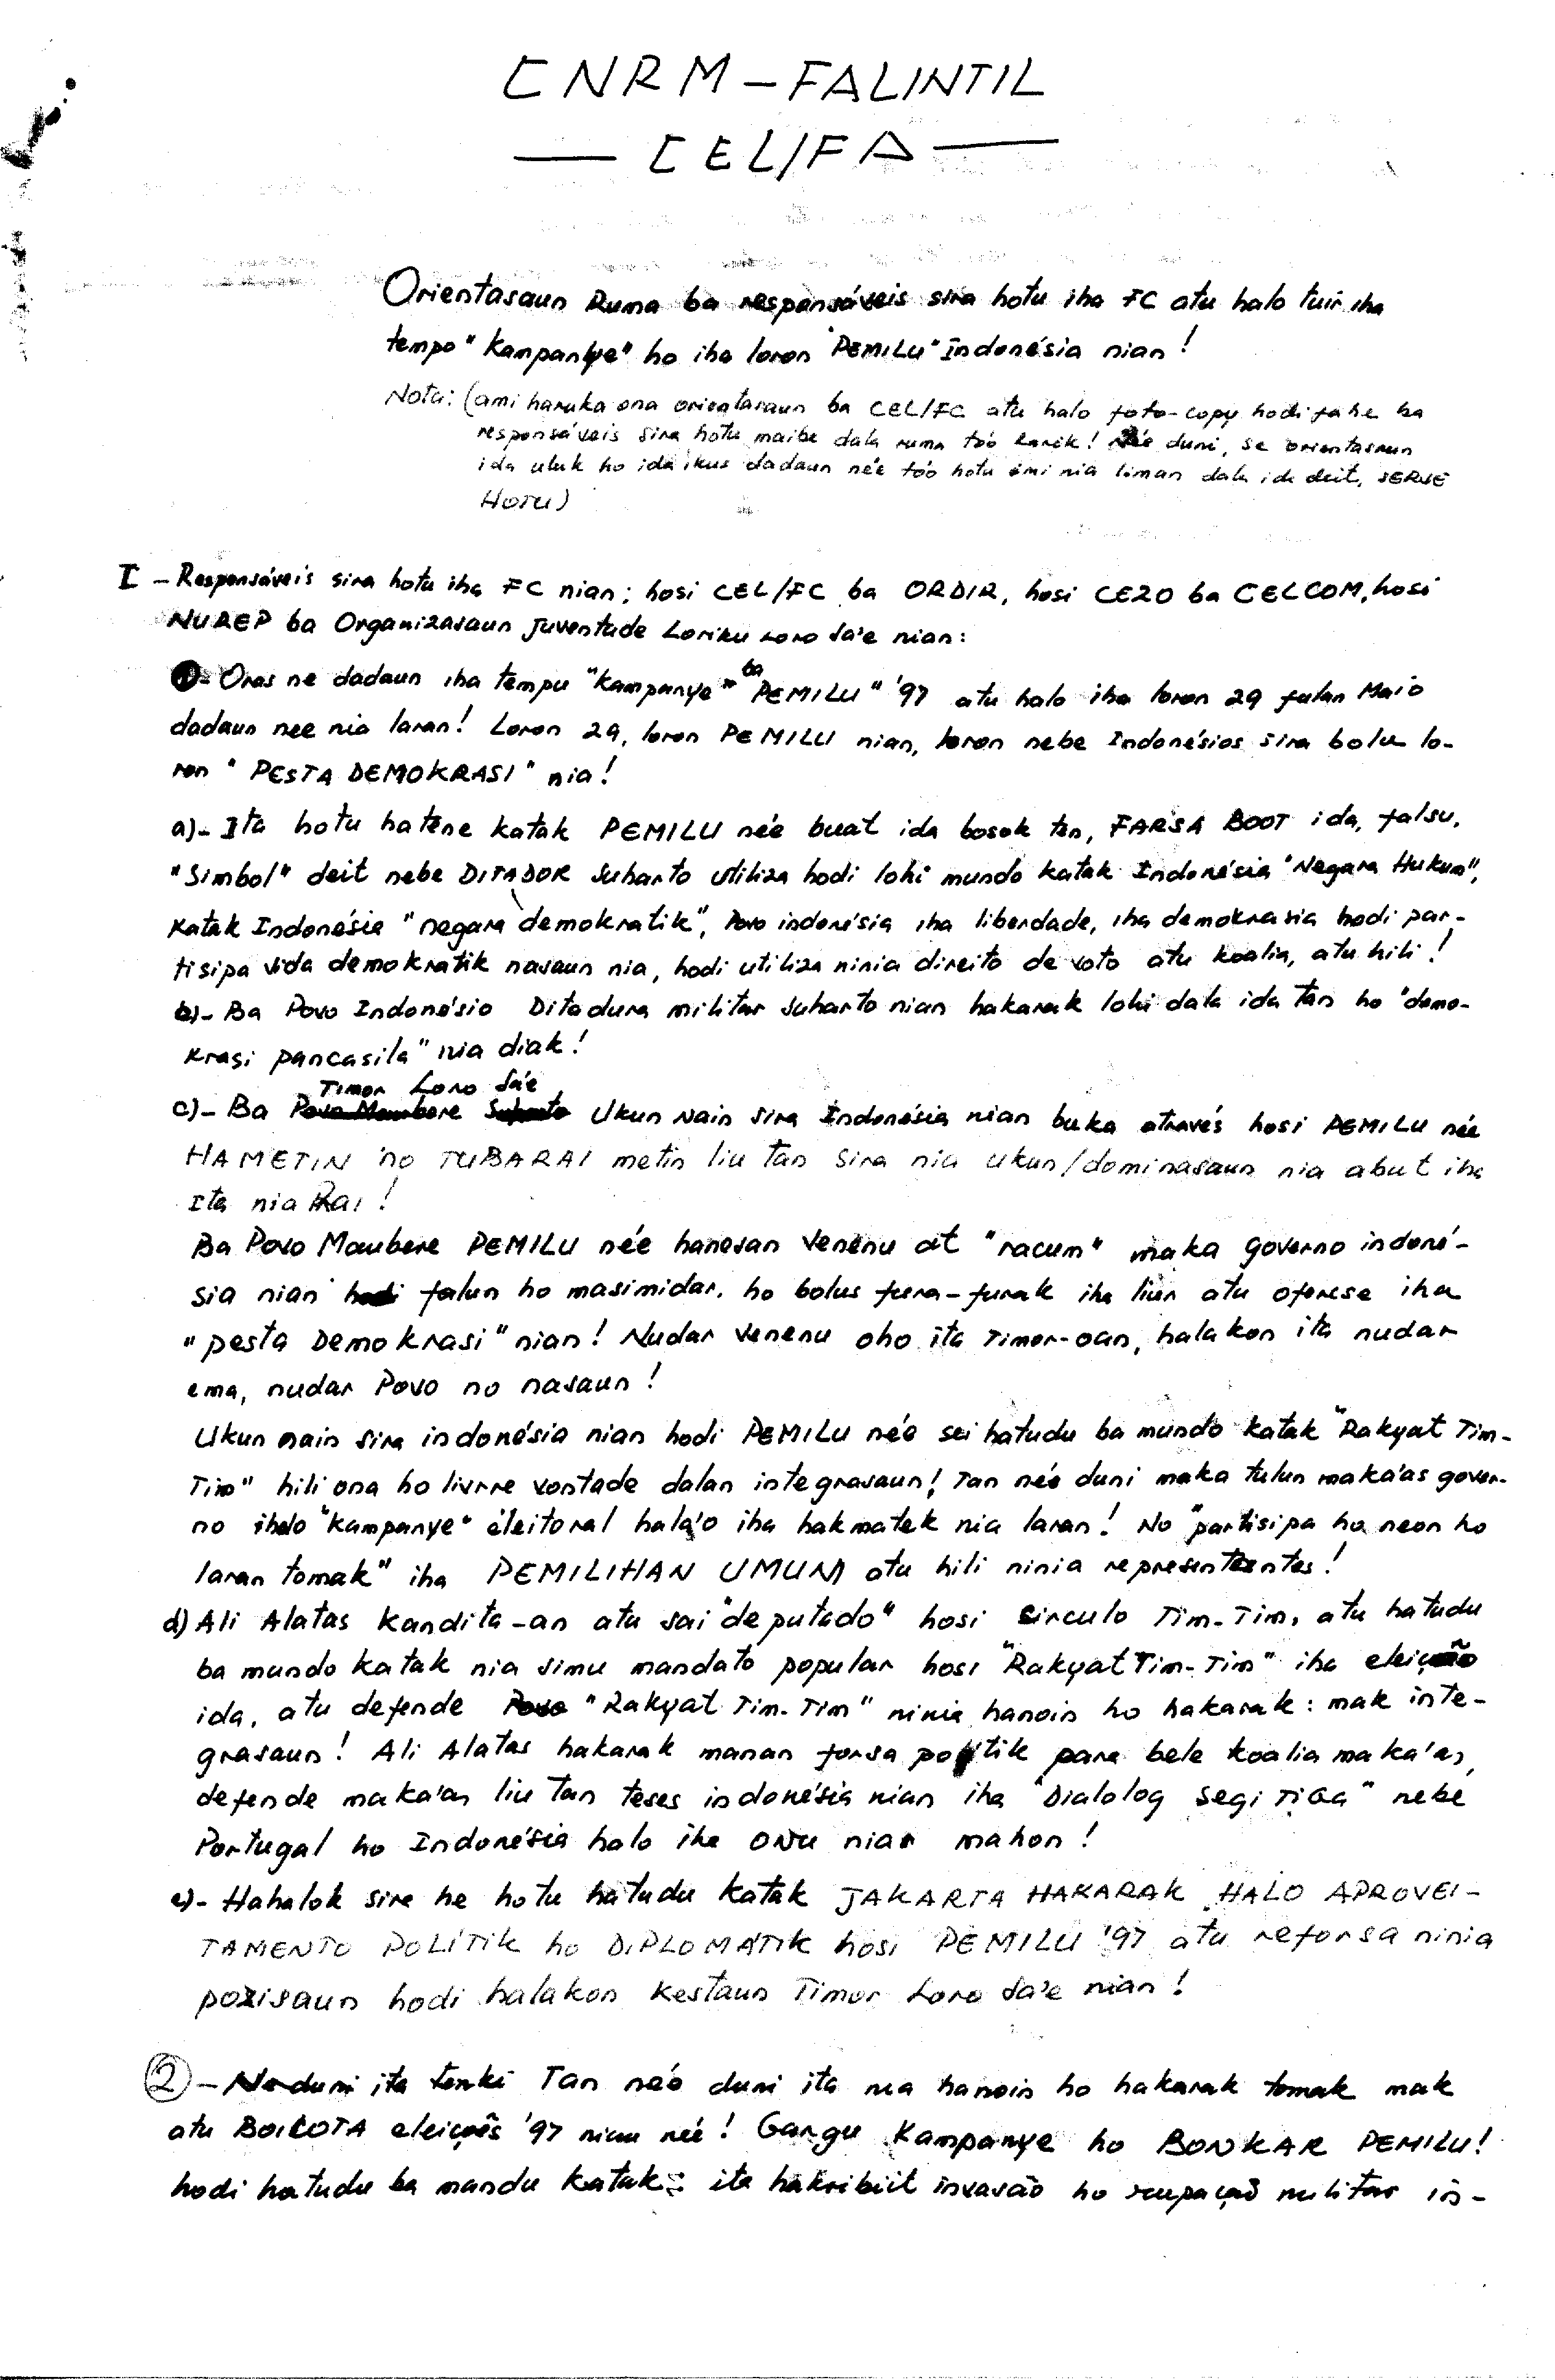 CNRM - FALINTIL
— CEL/FA —
Orientasaun Ruma ba responsáveis sira hotu iha FC atu halo tuir iha
tempo "Kampanye" ho iha loron "PEMILU" Indonésia nian!
Nota: (ami haruka ona orientasaun ba CEL/FC atu halo foto-copy hodi fahe ba
responsáveis sira hotu maibe dala ruma to'o larik! Née duni, se orientasaun
ida uluk ho ida ikus dadaun née to'o hotu imi nia liman dala ida deit, SERVE
HOTU)
I - Responsáveis sira hotu iha FC nian; hosi CEL/FC ba ORDIR, hosi CEZO ba CELCOM, hosi
NUREP ba Organizasaun Juventude Loriku Loro Sa'e nian:
1- Oras ne dadaun iha tempu "Kampanye" ba "PEMILU" '97 atu halo iha loron 29 fulan Maio
dadaun nee nia laran! Loron 29, loron PEMILU nian, loron nebe Indonésios sira bolu lo-
ron "PESTA DEMOKRASI" nia!
a)- Ita hotu hatene katak PEMILU née buat ida bosok ten, FARSA BOOT ida, falsu,
"Simbol" deit nebe DITADOR Suharto utiliza hodi lohi mundo katak Indonésia "Negara Hukum",
Katak Indonésia "negara demokratik", Povo indonésia iha liberdade, iha demokrasia hodi par-
tisipa vida demokratik nasaun nia, hodi utiliza ninia direito de voto atu koalia, atu hili!
b)- Ba Povo Indonésio Ditadura militar Suharto nian hakarak lohi dala ida tan ho "demo-
krasi pancasila" nia diak!
Timor Loro Sa'e
c)- Ba Povo Maubere Suharto Ukun Nain sira Indonésia nian buka através hosi PEMILU née
HAMETIN no TUBARAI metin liu tan sira nia ukun/dominasaun nia abut iha
Ita nia Rai!
Ba Povo Maubere PEMILU née hanesan venenu at "racum" maka governo indoné-
sia nian hodi falun ho masimidar, ho bolus fura-furak iha liur atu oferese iha
"pesta Demokrasi" nian! Nudar venenu oho ita Timor-oan, halakon ita nudar
ema, nudar Povo no nasaun!
Ukun nain sira indonésia nian hodi PEMILU née sei hatudu ba mundo katak "Rakyat Tim-
Tim" hili ona ho livrre vontade dalan integrasaun! Tan née duni maka tulun maka'as gover-
no ihalo "Kampanye" eleitoral hala'o iha hakmatek nia laran! No "partisipa ho neon ho
laran tomak" iha PEMILIHAN UMUM atu hili ninia representantes!
d) Ali Alatas Kandita-an atu sai "deputado" hosi circulo Tim-Tim, atu hatudu
ba mundo katak nia simu mandato popular hosi "Rakyat Tim-Tim" iha eleição
ida, atu defende Povo "Rakyat Tim-Tim" ninia hanoin ho hakarak: mak inte-
grasaun! Ali Alatas hakarak manan forsa politik para bele koalia maka'as,
defende maka'as liu tan teses indonésia nian iha "Dialolog Segi Tiga" nebe
Portugal ho Indonésia halo iha ONU nian mahon!
e)- Hahalok sira he hotu hatudu katak JAKARTA HAKARAK HALO APROVEI-
TAMENTO POLÍTIK ho DIPLOMÁTIK hosi PEMILU '97 atu reforsa ninia
pozisaun hodi halakon kestaun Timor Loro Sa'e nian!
2 - Neduni ita tenki Tan née duni ita nia hanoin ho hakarak tomak mak
atu BOICOTA eleições '97 nian née! Gangu Kampanye ho BONKAR PEMILU!
hodi hatudu ba mandu katak: ita hakribiit invasão ho ocupação militar in-